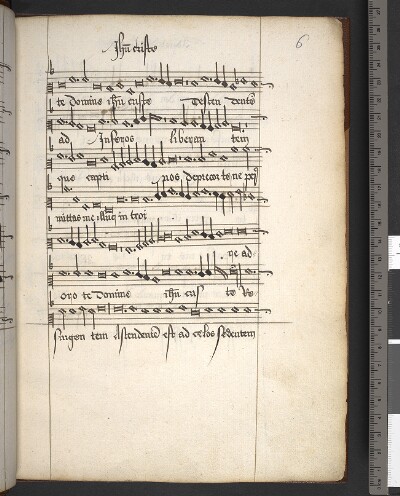 6
Jhu criste
te domine ihu criste Desten dente
ad Inferos liberan tem
que capti nos deprecor te ne p
mittas me illuc in troi
re ad
oro te domine ihu cris te Re
surgen tem Ascendente est ad celos sedentem